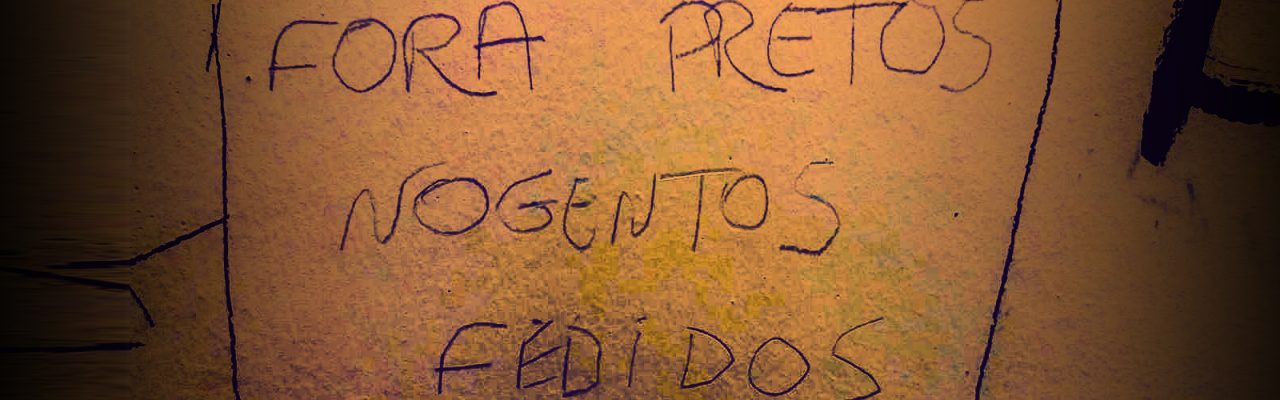 FORA PRETOS
NOGENTOS
FEDIDOS